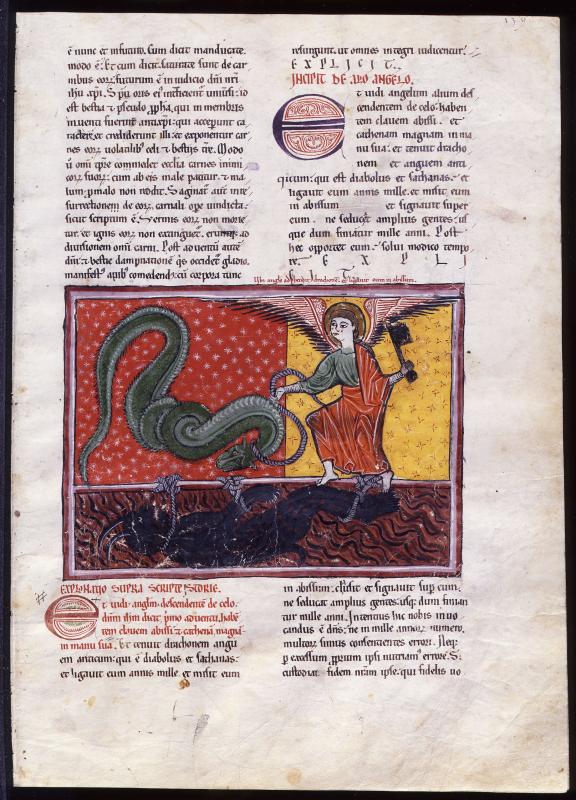 ē nunc et infuturo. Sum dicit manducate
modo ē. Et cum dicit. saturate sunt de car
nibus eorꝝ. futurum ē in iudicio dnī nrī
ihu xpī. Sp̄u oris ei interficient universi. io
est bestia et pseudo ꝓpha. qui in membris
inventi fuerint antixpī. qui acceperunt ca
racterē. et crediderunt illi. et exponentur car
nes eorꝝ volatilib; celi et bestiis tr̄e. Modo
ū omī tpr̄e commedet ecclia carnes inimi
corꝝ suorꝝ. cum ab eis male patitur. et ma
lum ꝓ malo non reddit. Saginat̄ aut̄ in re
surrectionem de eorꝝ carnali ope vindicta.
sicut scriptum ē. Vermis eorꝝ non morie
tur. et ignis eorꝝ non extinguet̄. erunt ad
divisionem omni carni. Post adventū autē
dnī. et bestie dampnationē ꝗs occidet gladio.
manifestꝰ apib; comedendi. cū corpora tunc
resurgunt. ut omnes integri iudicentur.
EXPLICIT.
INCIPIT DE ALIO ANGELO.
Et vidi angelum alium des
cendentem de celo. haben
tem clavem abissi. et
cathenam magnam in ma
nu sua. et tenuit dracho
nem et anguem anti
quum. qui est diabolus et sathanas. et
ligavit eum annis mille. et misit eum
in abissum et signavit super
eum. ne seducat amplius gentes. us
que dum finiatur mille anni. Post
hec oportet eum solvi modico tempo
re. EXPLI
Ubi angls adprehendit drachonem et ligavit eum in abissum. CIT
EXPLANATIO SUPRA SCRIPTE STORIE.
Et vidi anglm descendentē de celo.
dnm ihm dicit. primo adventu. habē
tem clavem abissi et cathenā magnā
in manu sua. Et tenuit drachonem angu
em anticum. qui ē diabolus et sathanas.
et ligavit eum annis mille. et misit eum
in abissum. clusit et signavit sup eum.
ne seducat amplius gentes. usq; dum finian
tur mille anni. Intentus hic nobis invo
candus ē dns. ne in mille annorꝝ numero.
multorꝝ simus consentientes errori. Neq;
ꝑ excessum ꝓprium ipsi nutriamꝰ errorē. S;
custodiat fidem nrām ipse. qui fidelis vo